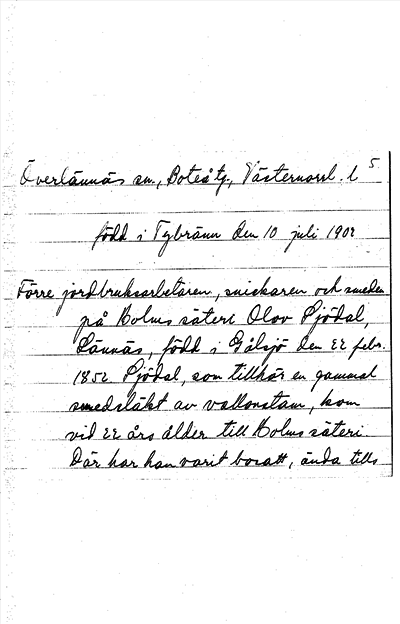 5
Överlännäs sn., Boteå tg., Västernorrl. l
född i Tybränn den 10 juli 1902
Förre jordbruksarbetaren, snickaren och smeden
på Holms säteri Olov Sjödal,
Lännäs, född i Gålsjö den 22 febr.
1852. Sjödal, som tillhör en gammal
smedsläkt av vallonstam, kom
vid 22 års ålder till Holms säteri.
Där har han varit bosatt, ända tills